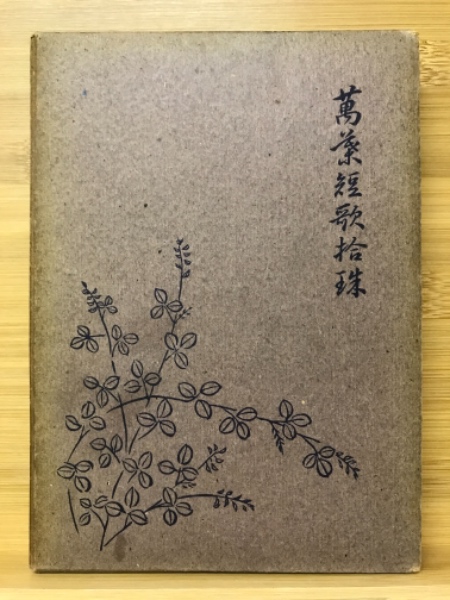 萬葉短歌拾珠